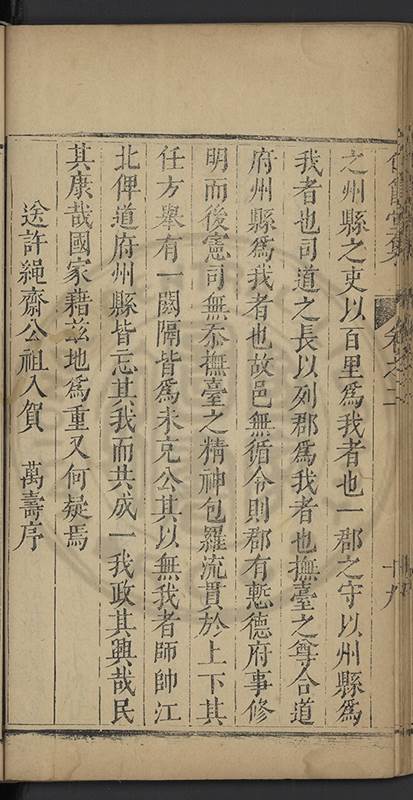 之州縣之吏以百里爲我者也一郡之守以州縣爲
我者也司道之長以列郡爲我者也撫臺之尊合道
府州縣爲我者也故邑無循令則郡有慙德府事修
明而後憲司無忝撫臺之精神包羅流貫於上下其
任方舉有一闕隔皆爲未克公其以無我者師帥江
北俾道府州縣皆忘其我而共成一我政其興哉民
其康哉國家藉茲地爲重又何疑焉
送許繩齋公祖入賀　萬壽序